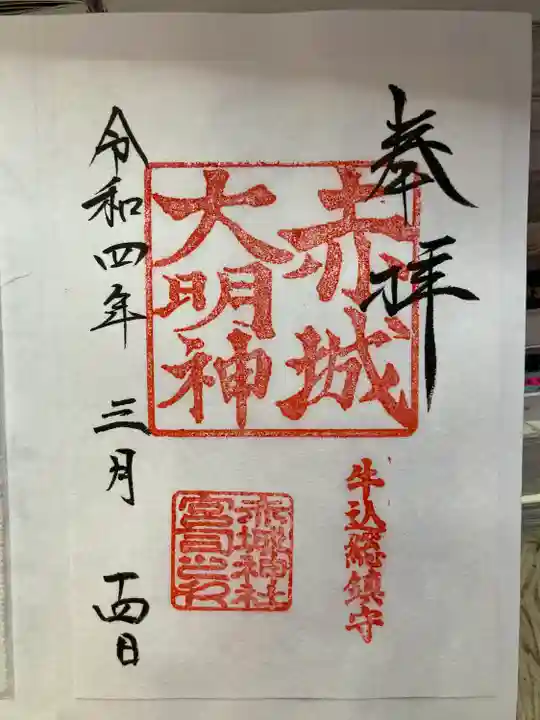 奉拝
赤城
大明神
牛込総鎮守
赤城神社
宮司之印
令和四年 三月 十四日